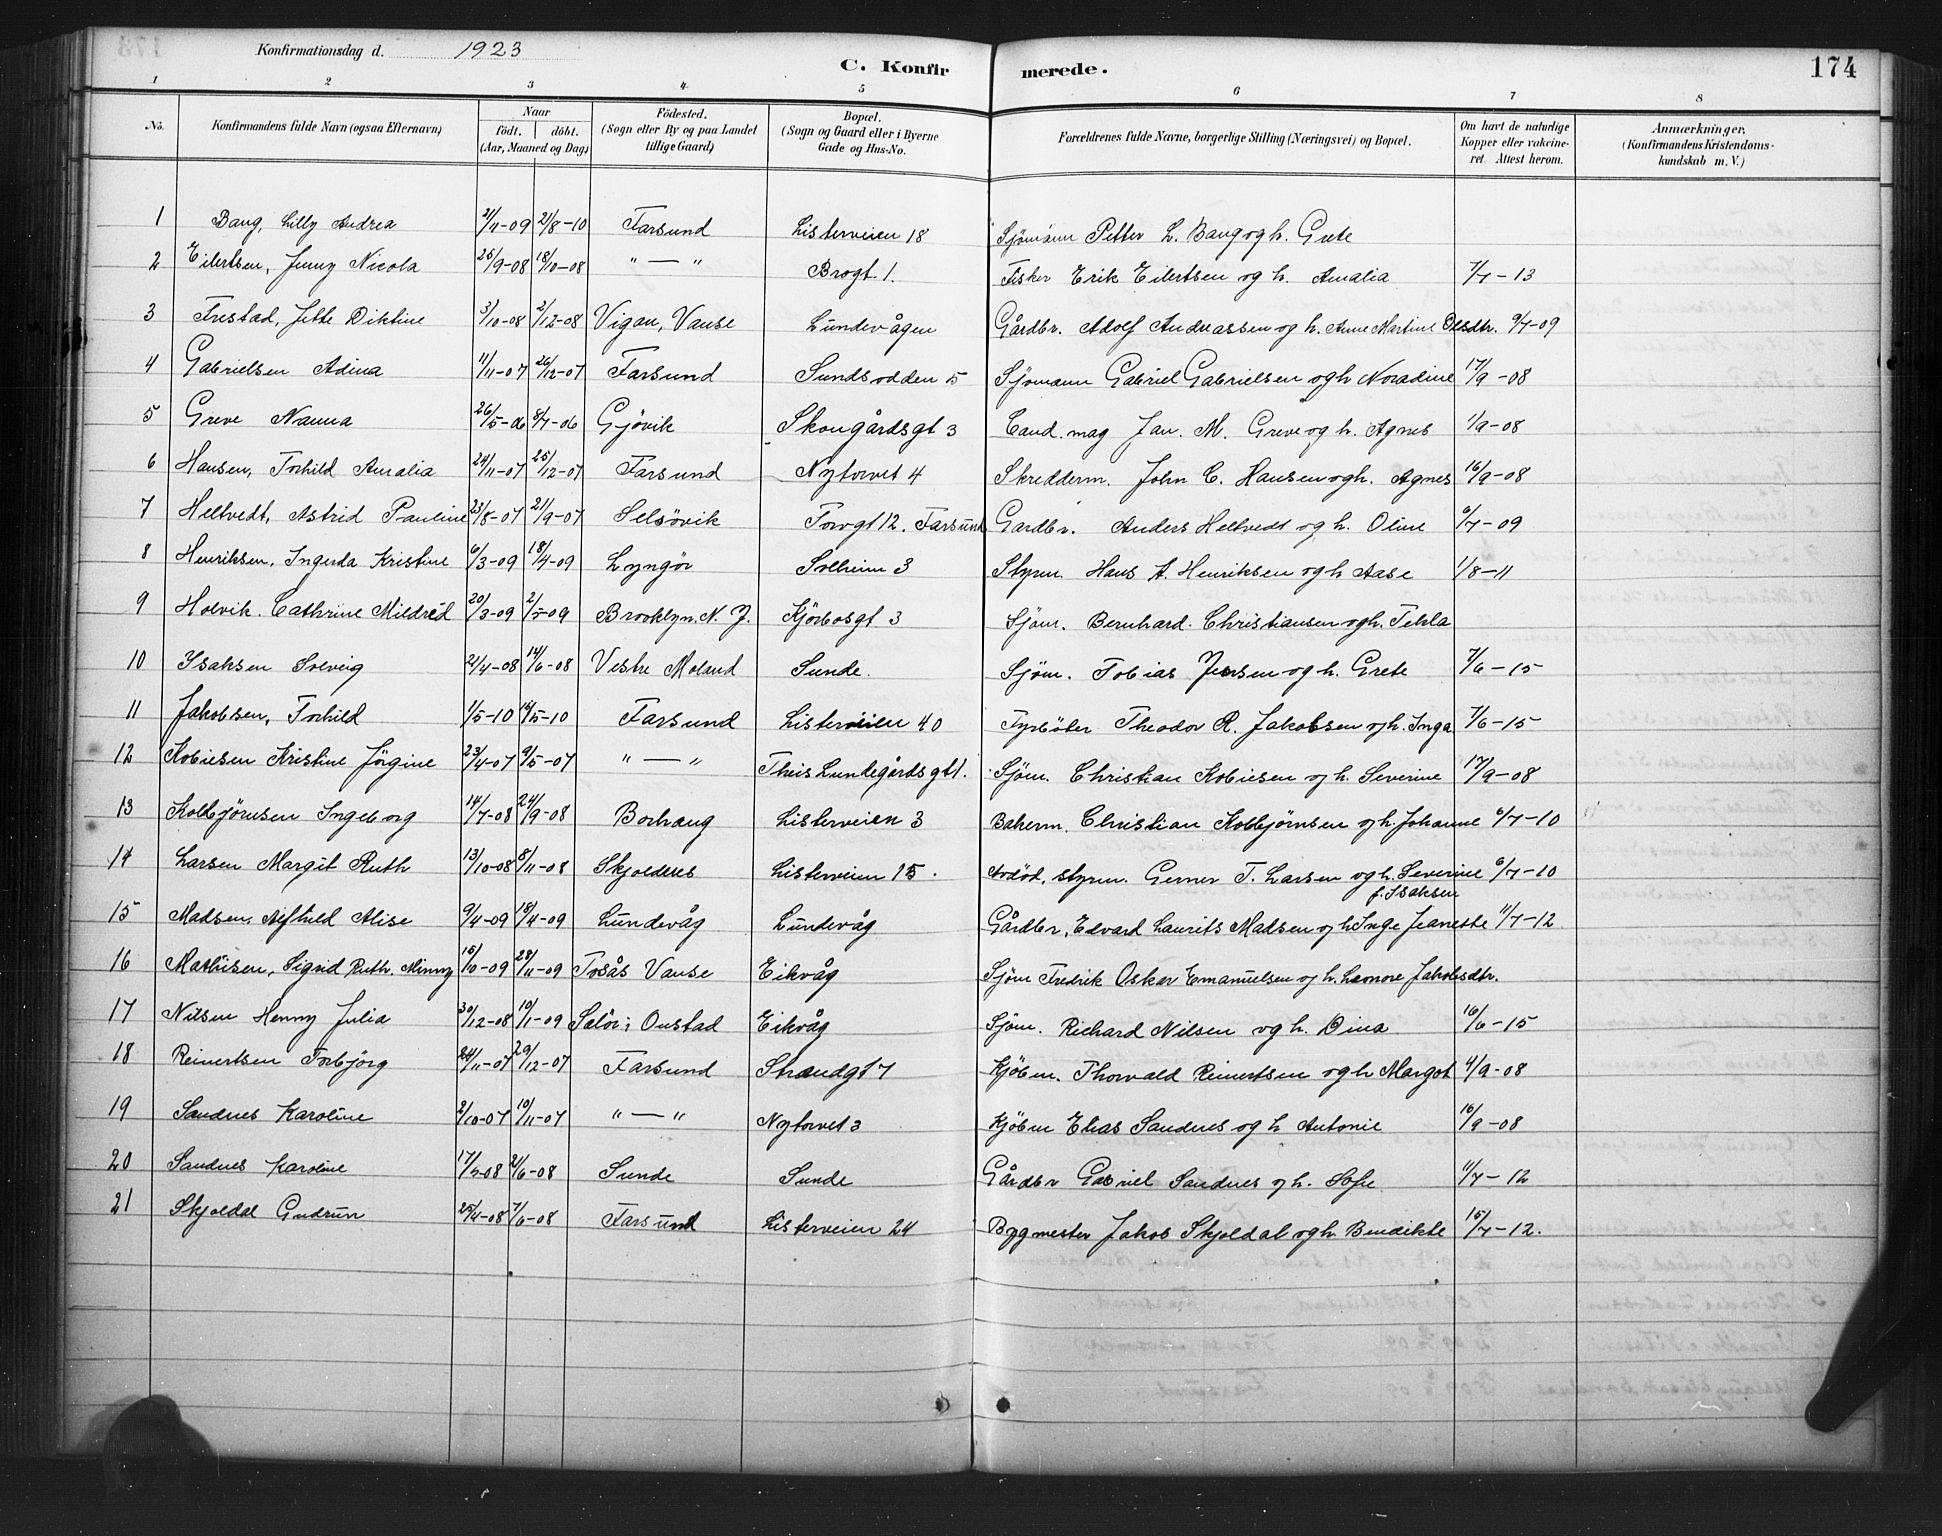 Konfirmationsdag d. 1923
C. Konfirmerede. 174
1 2 3 4 5 6 7 8
No. Konfirmandens fulde Navn (ogsaa Efternavn) Naar födt. döbt. (Aar, Maaned og Dag) Födested. (Sogn eller By og paa Landet tillige Gaard) Bopæl. (Sogn og Gaard eller i Byerne Gade og Hus-No. Forældrenes fulde Navne, borgerlige Stilling (Næringsvei) og Bopæl. Om havt de naturlige Kopper eller vakcineret. Attest herom. Anmærkninger. (Konfirmandens Kristendomskundskab m. V.)
1 Bang, Lilly Andrea 2/11-09 21/8-10 Farsund Listerveien 18 Sjömann Petter L. Bang og h. Grete
2 Eilertsen, Jenny Nicola 25/9-08 18/10-08 " — " Brogt. 1. Fisker Erik Eilertsen og h. Amalia 7/7-13
3 Frestad, Jette Diktine 3/10-08 2/12-08 Vigan, Vanse Lundevågen Gårdbr. Adolf Andreassen og h. Anne Martine Olsdtr. 9/7-09
4 Gabrielsen Adina 11/11-07 26/12-07 Farsund Sundsodden 5 Sjömann Gabriel Gabrielsen og h Noradine 17/9-08
5 Greve Nanna 26/5-06 8/7-06 Gjövik Skougårdsgt 3 Cand. mag Jan. M. Greve og h. Agnes 1/9-08
6 Hansen, Torhild Amalia 24/11-07 25/12-07 Farsund Nytorvet 4 Skredderm. John C. Hansen og h. Agnes 16/9-08
7 Heltvedt, Astrid Pauline 23/8-07 21/9-07 Selsövik Torvgt 12. Farsund Gardbr. Anders Heltvedt og h. Oline 6/7-09
8 Henriksen, Ingerda Kristine 6/3-09 18/4-09 Lyngör Solheim 3 Styrm. Hans A. Henriksen og h Aase 1/8-11
9 Holvik. Cathrine Mildred 20/3-09 2/5-09 Brooklyn. N. J. Kjörbosgt 3 Sjöm. Bernhard. Christiansen og h. Tekla
10 Isaksen Solveig 2/4-08 14/6-08 Vestre Moland Sunde. Sjöm. Tobias Jensen og h. Grete 7/6-15
11 Jakobsen, Torhild 1/5-10 16/5-10 Farsund Listerveien 40 Fyrböter Theodor R. Jakobsen og h. Inga 7/6-15
12 Kobiesen Kristine Jörgine 23/4-07 9/5-07 " — " Theis Lundegårdsgt 1. Sjöm. Christian Kobiesen og h. Severine 17/9-08
13 Kolbjörnsen Ingeborg 14/7-08 24/9-08 Borhaug Listerveien 3 Bakerm. Christian Kolbjörnsen og h. Johanne 6/7-10
14 Larsen Margit Ruth 13/10-08 8/11-08 Skjolderes Listerveien 15. Avdöd, styrm. Gerner T. Larsen og h. Severine 6/7-10
f. Isaksen
15 Madsen, Alfhild Alise 9/4-09 18/4-09 Lundevåg Lundevåg Gårdbr, Edvard Laurits Madsen og h Inge Jeanette 11/7-12
16 Mathisen, Sigrid Ruth. Minny 15/10-09 28/11-09 Tosås Vanse Eikvåg Sjöm Fredrik Oskar Emanuelsen og h. Leonore Jakobsdtr.
17 Nilsen Henny Julia 30/12-08 10/1-09 Selör i Onstad Eikvåg Sjöm. Richard Nilsen og h. Dina 16/6-15
18 Reinertsen Torbjörg 24/11-07 29/12-07 Farsund Strandgt 7 Kjöbm. Thorvald Reinertsen og h Margot 4/9-08
19 Sandnes Karoline 2/10-07 10/11-07 " — " Nytorvet 3 Kjöbm Elias Sandnes og h Antonie 16/9-08
20 Sandnes Karoline 17/5-08 21/6-08 Sunde Sunde Gårdbr Gabriel Sandnes og h. Sofie 11/7-12
21 Skjoldal Gudrun 25/4-08 7/6-08 Farsund Listerveien 24 Bygmester Jakob Skjoldal og h. Bendikte 15/7-12.